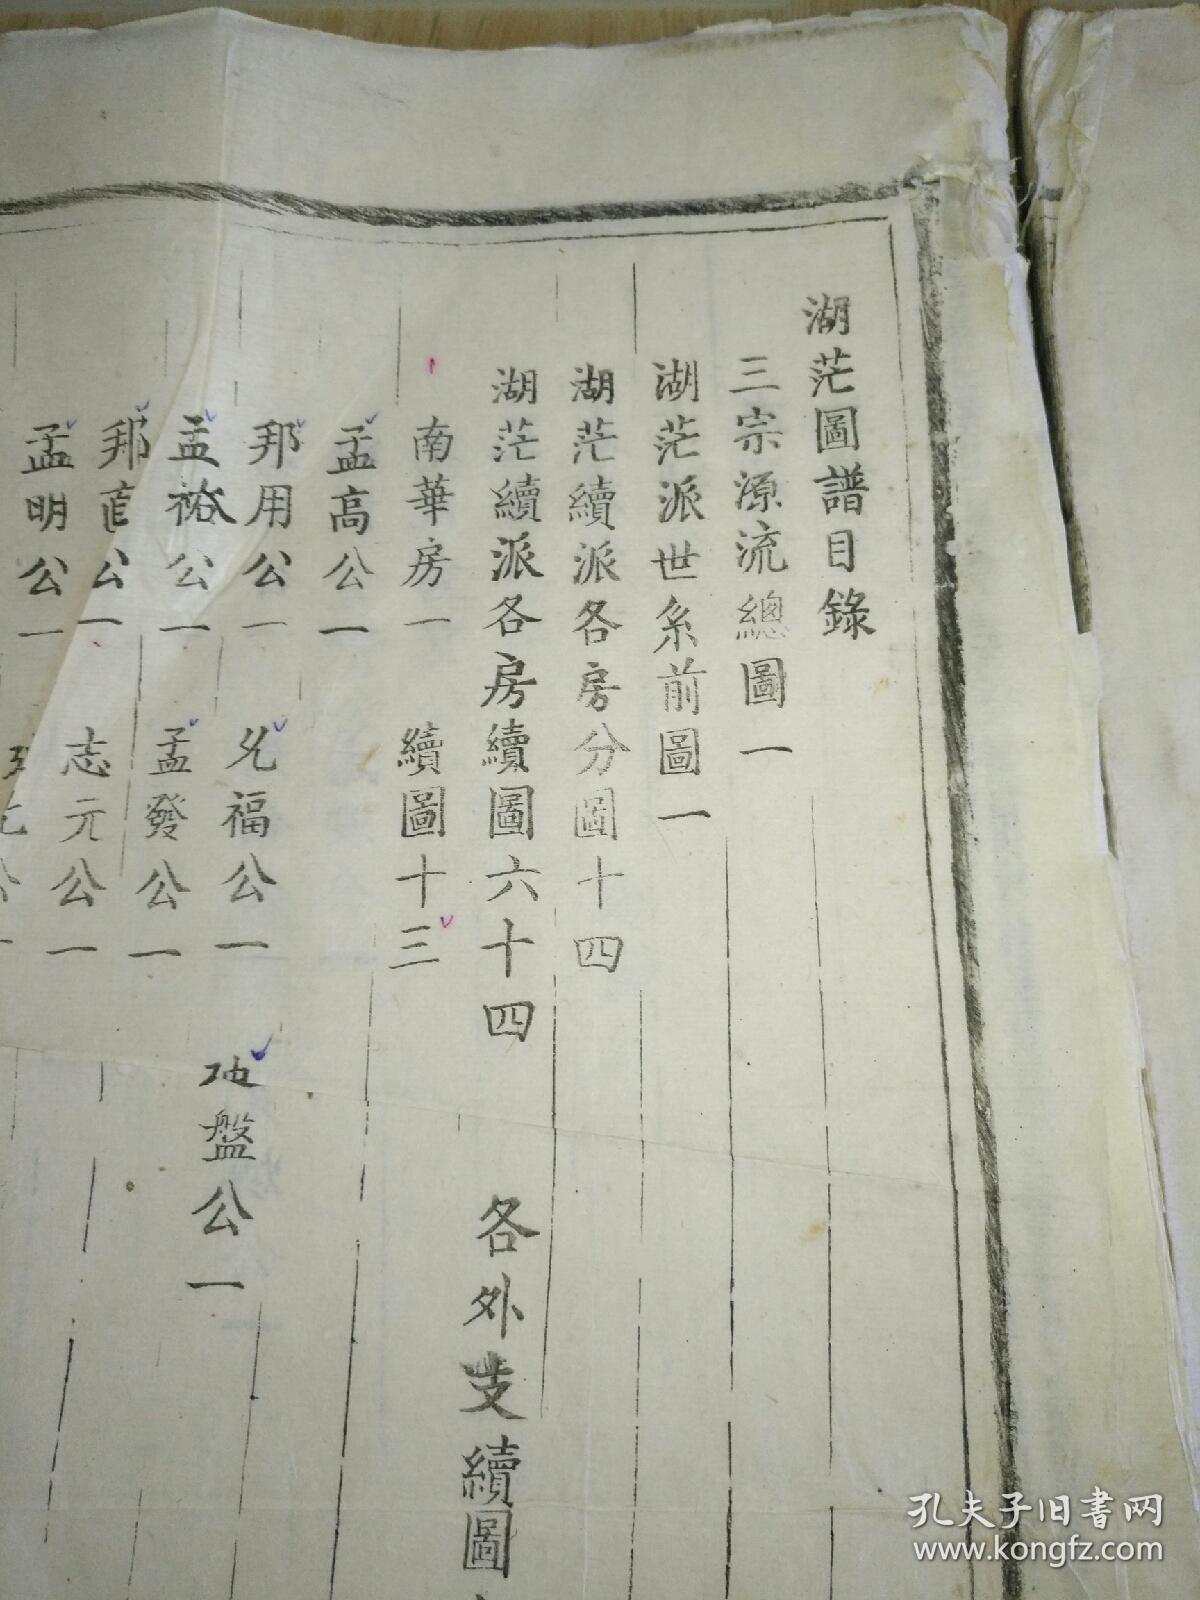 湖茫圖譜目錄
三宗源流總圖一
湖茫派世系前圖一
湖茫續派各房分圖十四
湖茫續派各房續圖六十四 各外支續圖
南華房一 續圖十三
孟高公一
邦用公一 允福公一 盤公一
孟裕公一 孟發公一
邦直公一 志元公一
孟明公一 元公一
孔夫子旧书网
www.kongfz.com